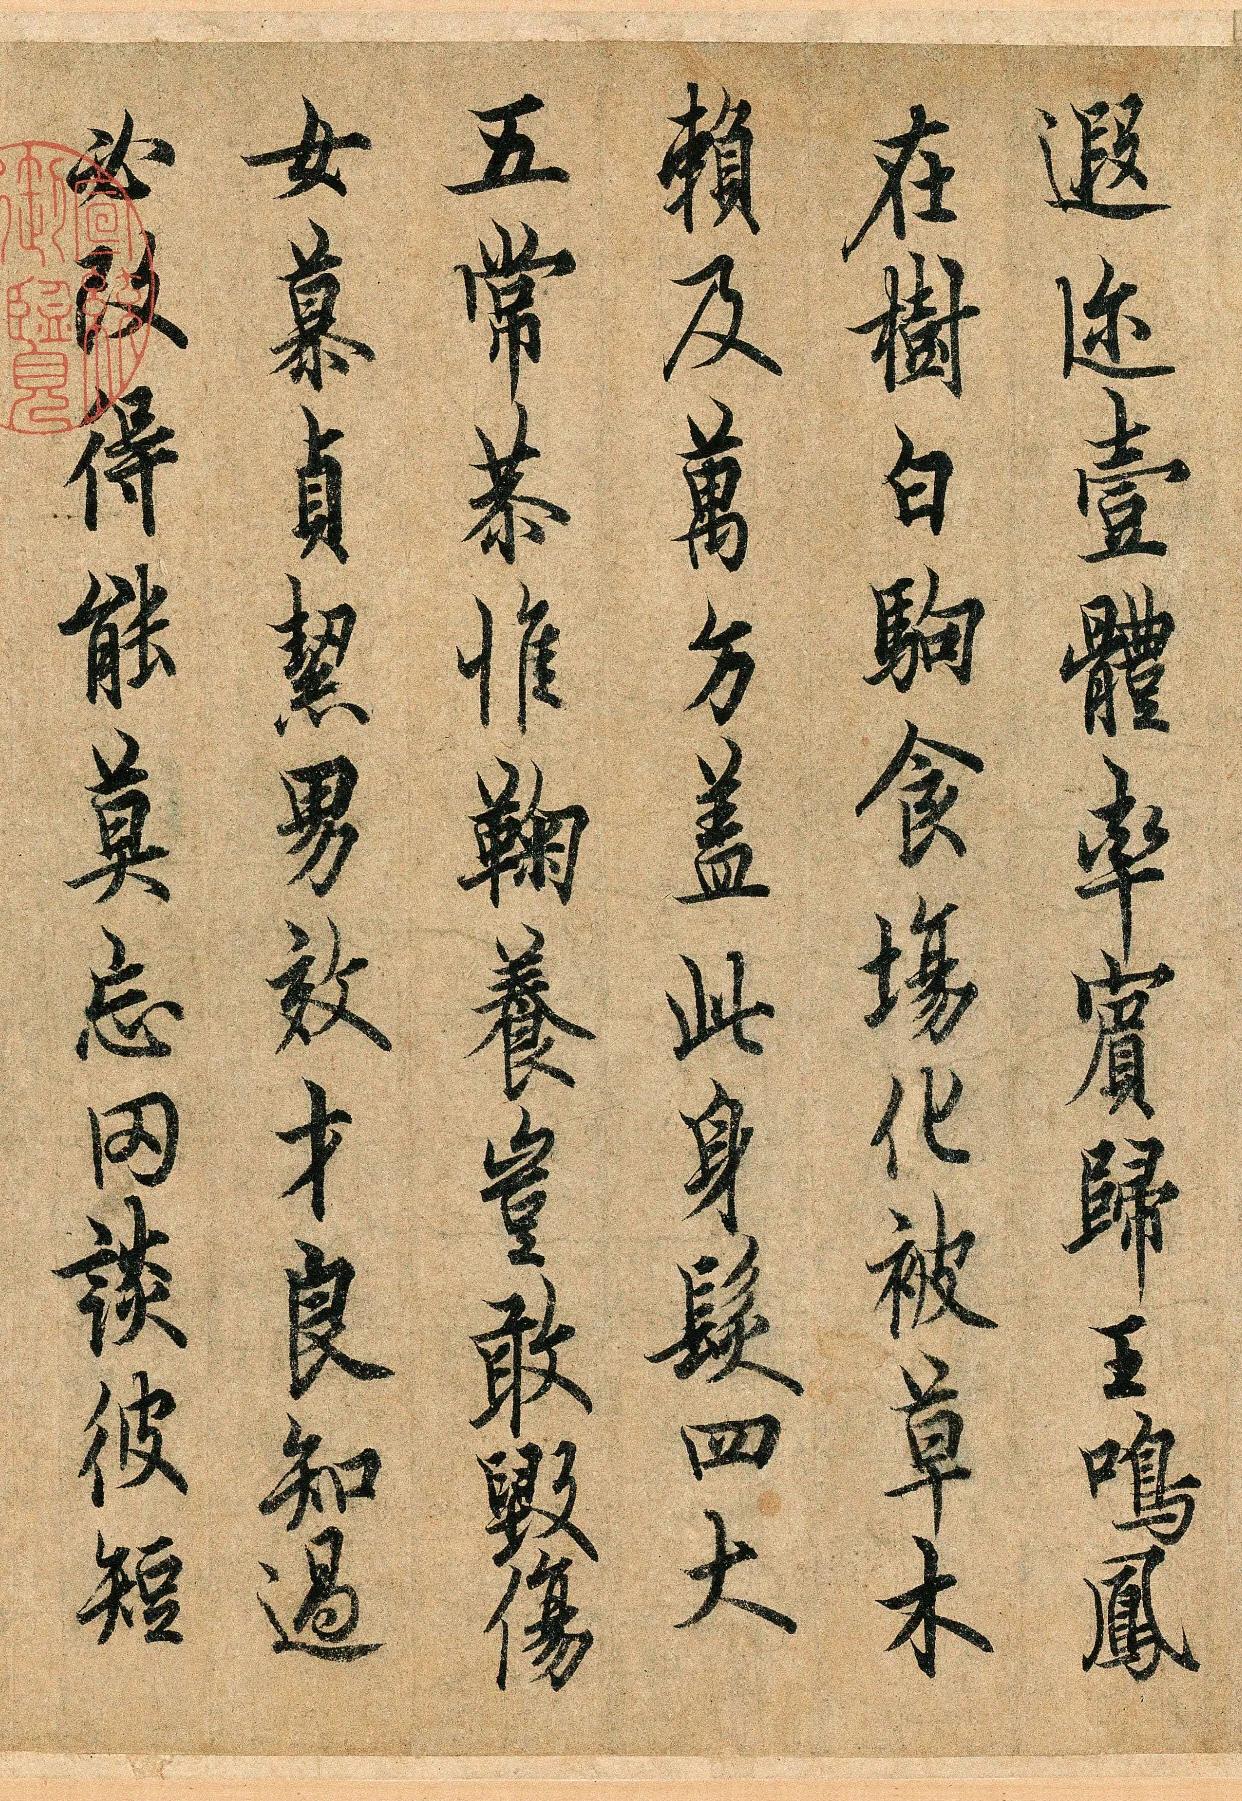 遐迩壹體率賓歸王鳴鳳
在樹白駒食場化被草木
賴及萬方盖此身髮四大
五常恭惟鞠養豈敢毀傷
女慕貞絜男效才良知過
必改得能莫忘罔談彼短
宣統御覽